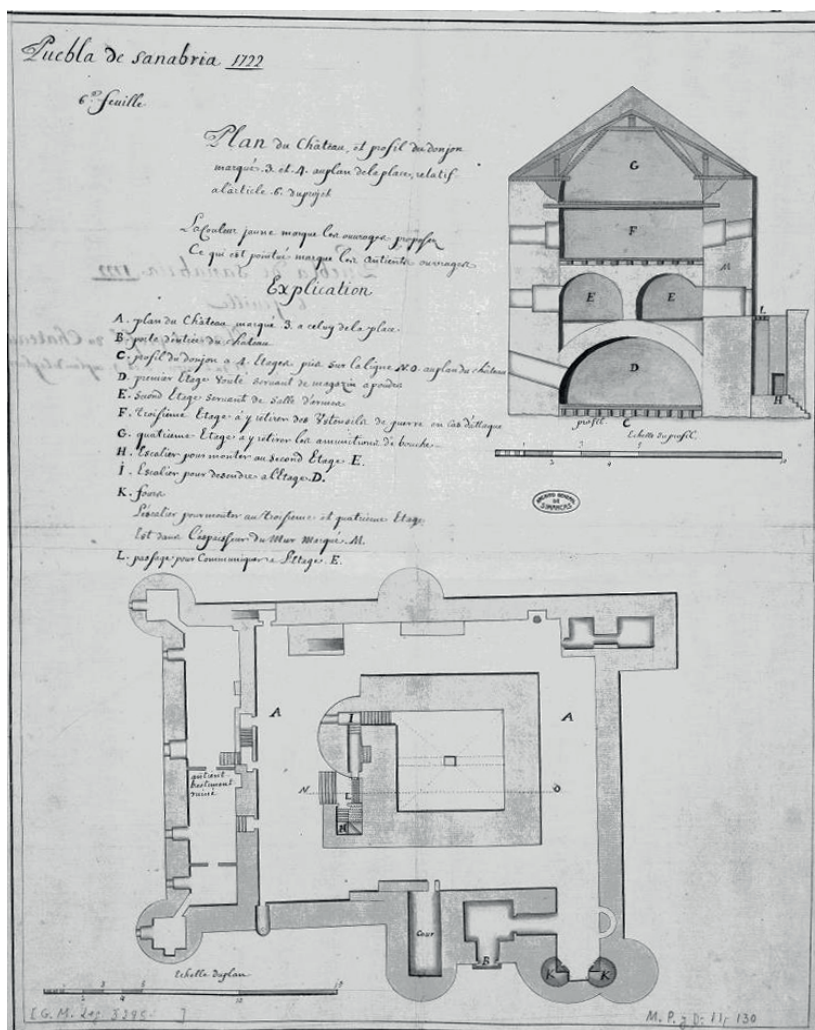 Puebla de Sanabria 1722
6.e feuille
Plan du Château, et profil du donjon
marqué .3. et .4. au plan de la place, relatif
a l'article .6. du projet
La Couleur jaune marque les ouvrages proposez
Ce qui est pointué marque les Antients ouvrages
Explication
A. plan du Château marqué .3. a celuy de la place.
B. porte d'entrée du château
C. profil du donjon a 4. Etages, pris sur la ligne N.O. au plan du château
D. premier Etage Vouté servant de magazin a poudre
E. second Etage servant de salle d'armes
F. troisieme Etage à y retirer des Ustensiles de guerre en cas d'attaque
G. quatrieme Etage a y retirer les ammunitions de bouche
H. Escalier pour monter au second Etage E.
I. Escalier pour descendre a l'Etage D.
K. fours
L'escalier pour monter au troisieme et quatrieme Etage
Est dans l'épaisseur du Mur marqué M.
L. passage pour Communiquer a l'Etage E.
G
F
M
E E
L
D
H
profil C
Echelle du profil
ARCHIVO GENERAL
DE
SIMANCAS
A A
I
N O
H
Cour
B
K K
Echelle du plan
M. P. y D. 11, 130